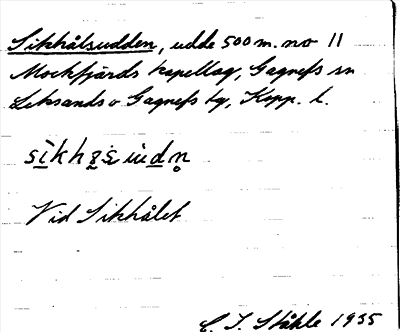 Sikhålsudden, udde 500 m. no ll
Mockfjärds kapellag, Gagnefs sn
Leksands o Gagnefs tg, Kopp. l.
Vid Sikhålet
C. I. Ståhle 1935